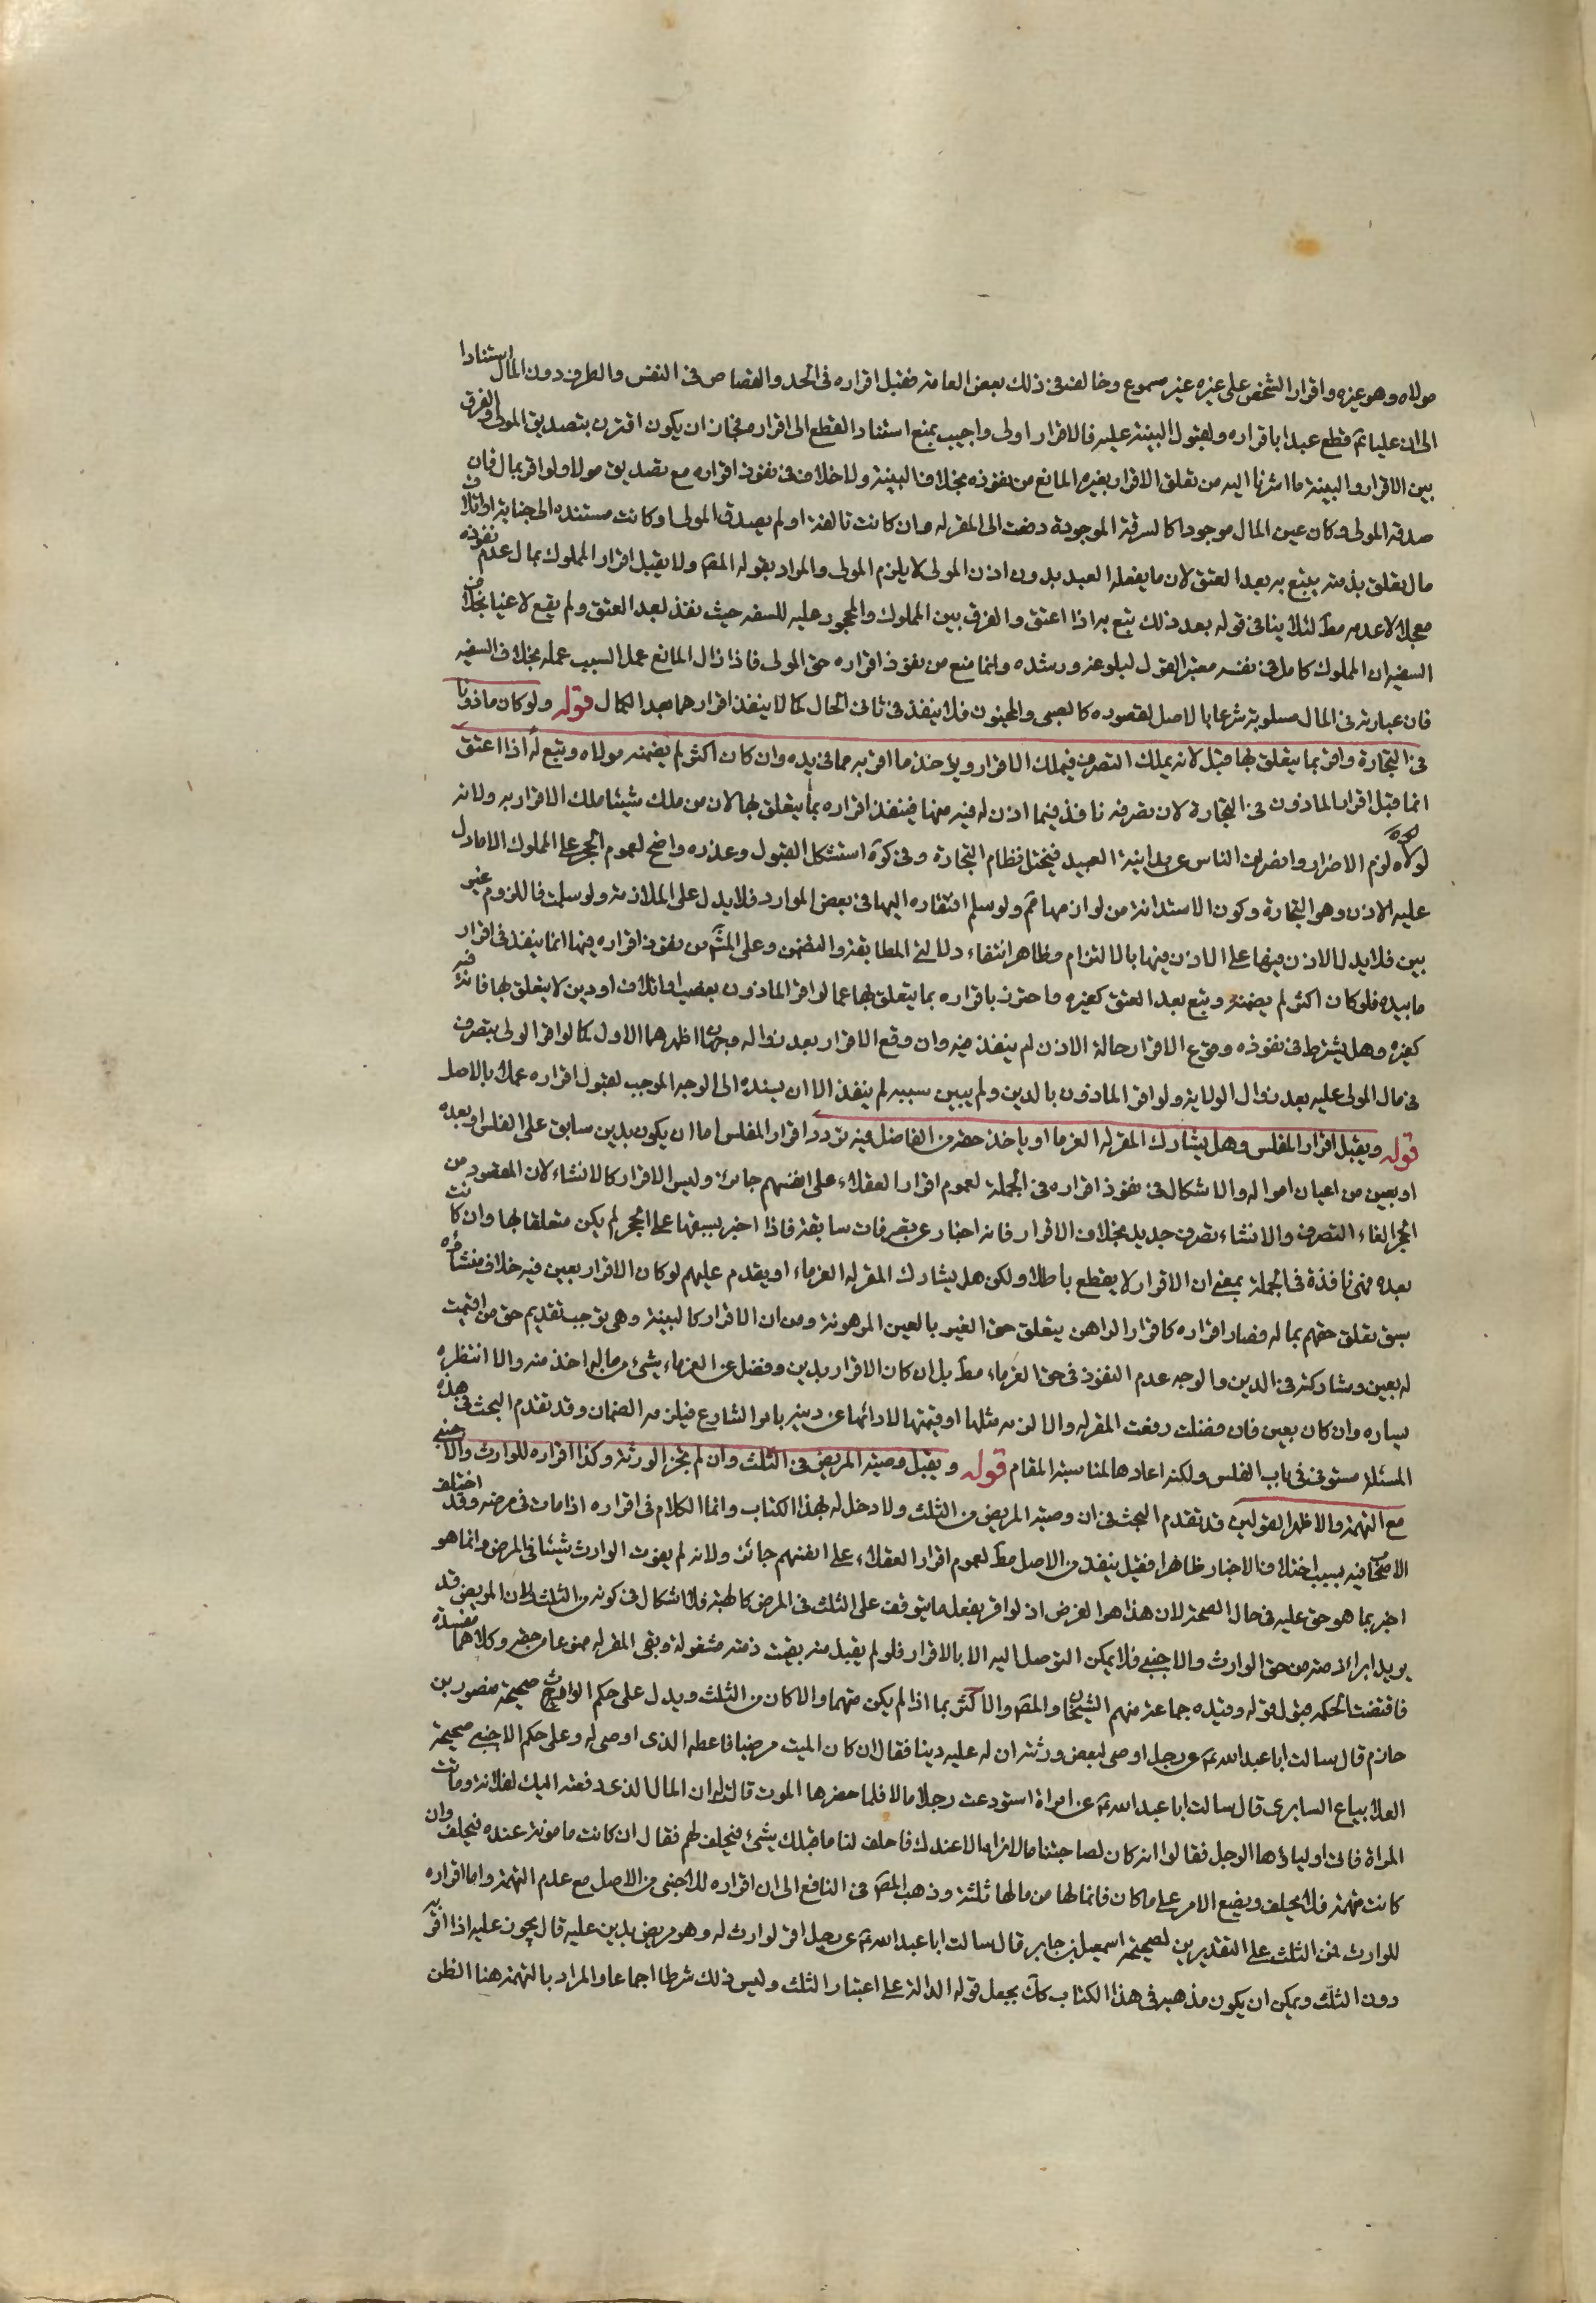 مولاه وهو غيره واقرار الشخص على غيره غير مسموع وخالف فى ذلك بعض العامة فقبل اقراره فى الحد والقصاص فى النفس والطرف دون المال استنادا
الى ان عليا ع قطع عبدا باقراره ولقبول البينة عليه فالاقرار اولى واجيب بمنع استناد القطع الى اقراره فجاز ان يكون اقترن بتصديق المولى والفرق
بين الاقرار والبينة ما اشرنا اليه من تعلق الاقرار بغيره المانع من نفوذه بخلاف البينة ولا خلاف فى نفوذ اقراره مع تصديق مولاه ولو اقر بمال فان
صدقه المولى وكان عين المال موجودا كالسرقة الموجودة دفعت الى المقر له وان كانت تالفة او لم يصدقه المولى او كانت مستنده الى جناية او اتلاف
مال يعلق بذمته يتبع به بعد العتق لان ما يفعله العبد بدون اذن المولى لا يلزم المولى والمراد بقوله المص ولا يقبل اقرار المملوك بمال عدم نفوذه
معجلا لا عدمه مط لئلا ينافى قوله بعد ذلك يتبع به اذا اعتق والفرق بين المملوك والمحجور عليه للسفه حيث نفذ بعد العتق ولم يقع لاغيا بخلاف
السفيه ان المملوك كامل فى نفسه معتبر القول لبلوغه ورشده وانما منع من نفوذ اقراره حق المولى فاذا زال المانع عمل السبب عمله بخلاف السفيه
فان عبارته فى المال مسلوبة شرعا بالاصل لقصوره كالصبى والمجنون فلا ينفذ فى ثانى الحال كما لا ينفذ اقرارهما بعد الكمال قوله ولو كان ماذونا
فى التجارة واقر بما يتعلق بها قبل لانه يملك التصرف فيملك الاقرار ويؤخذ ما اقر به مما فى يده وان كان اكثر لم يضمنه مولاه ويتبع به اذا اعتق
انما قبل اقرار الماذون فى التجارة لان تصرفه نافذ فيما اذن له فيه منها فينفذ اقراره بما يتعلق بها لان من ملك شيئا ملك الاقرار به ولانه
لولاه لزم الاضرار وانصراف الناس عن مداينة العبيد فيختل نظام التجارة وفى كره استشكل القبول وعذره واضح لعموم الحجر على المملوك الا ما دل
عليه الاذن وهو التجارة وكون الاستدانة من لوازمها مم ولو سلم افتقاره اليها فى بعض الموارد فلا يدل على الملازمة ولو سلمت فاللزوم غير
بين فلا يدل الاذن فيها على الاذن فيها بالالتزام وظاهر انتفاء دلالتى المطابقة والتضمن وعلى المش من نفوذ اقراره فيها انما ينفذ فى اقرار
ما بيده فلو كان اكثر لم يضمنه ويتبع بعد العتق كغيره واحترز باقراره بما يتعلق بها عما لو اقر الماذون بغصب او اتلاف او دين لا يتعلق بها فانه فيه
كغيره وهل يشترط فى نفوذه وقوع الاقرار حالة الاذن لم ينفذ فيه وان وقع الاقرار بعد زواله وجهان اظهرهما الاول كما لو اقر الولى بتصرف
فى مال المولى عليه بعد زوال الولاية ولو اقر الماذون بالدين ولم يبين سببه لم ينفذ الا ان يسنده الى الوجه الموجب لقبول اقراره عملا بالاصل
قوله ويقبل اقرار المفلس وهل يشارك المقر له الغرما او ياخذ حقه من الفاضل فيه تردد اقرار المفلس اما ان يكون بدين سابق على الفلس او بعده
او بعين من اعيان امواله ولا اشكال فى نفوذ اقراره فى الجملة لعموم اقرار العقلاء على انفسهم جائز وليس الاقرار كالانشاء لان المقصود من
الحجر الغاء التصرف والانشاء تصرف جديد بخلاف الاقرار فانه اخبار عن تصرفات سابقة فاذا اخبر بسبقها على الحجر لم يكن متعلقا بها وان كانت
بعده فهى نافذة فى الجملة بمعنى ان الاقرار لا يقطع باطلا ولكن هل يشارك المقر له الغرماء او يقدم عليهم لو كان الاقرار بعين فيه خلاف منشاؤه
سبق تعلق حقهم بماله فصار اقراره كاقرار الراهن يتعلق حق الغير بالعين المرهونة ومن ان الاقرار كالبينة وهى توجب تقديم حق من اقيمت
له بعين ومشاركته فى الدين والوجه عدم النفوذ فى حق الغرماء مط بل ان كان الاقرار بدين وفضل عن الغرماء شىء من ماله اخذ منه والا انتظر به
يساره وان كان بعين فان فضلت دفعت المقر له والا لزمه مثلها او قيمتها لادائها عن دينه بامر الشارع فيلزمه الضمان وقد تقدم البحث فى هذه
المسئلة مستوفى فى باب الفلس ولكنه اعادها لمناسبة المقام قوله ويقبل وصية المريض فى الثلث وان لم تجز الورثة وكذا اقراره للوارث والاجنبى
مع التهمة والاظهر القولين قد تقدم البحث فى ان وصية المريض من الثلث ولا دخل له بهذا الكتاب وانما الكلام فى اقراره اذا مات فى مرضه وقد اختلف
الاصحاب فيه بسبب اختلاف الاخبار ظاهرا فقيل ينفذ من الاصل مط لعموم اقرار العقلاء على انفسهم جائز ولانه لم يفوت الوارث شيئا فى المرض وانما هو
اخبر بما هو حق عليه فى حال الصحة لان هذا هو الغرض اذ لو اقر بفعل ما يتوقف على الثلث فى المرض كالهبة فلا اشكال فى كونه من الثلث ولان المريض قد
يريد ابراء ذمته من حق الوارث والاجنبى فلا يمكن التوصل اليه الا بالاقرار فلو لم يقبل منه بقيت ذمته مشغولة وبقى المقر له ممنوعا من حقه وكلاهما مفسدة
فاقتضت الحكمة قبول قوله وقيده جماعة منهم الشيخان والمص والاكثر بما اذا لم يكن متهما والا كان من الثلث ويدل على حكم الوارث صحيحة منصور بن
حازم قال سالت ابا عبد الله ع عن رجل اوصى لبعض ورثته ان له عليه دينا فقال ان كان الميت مرضيا فاعطه الذى اوصى له وعلى حكم الاجنبى صحيحة
العلا بياع السابرى قال سالت ابا عبد الله ع عن امراة استودعت رجلا مالا فلما حضرها الموت قالت له ان المال الذى دفعته اليك لفلانة وماتت
المراة فاتى اولياؤها الرجل فقالوا انه كان لصاحبتنا مال لا نراه الا عندك فاحلف لنا ما قبلك شىء فيحلف لهم فقال ان كانت مامونة عنده فيحلف وان
كانت متهمة فلا يحلف ويضع الامر على ما كان فانما لها من مالها ثلثة وذهب المص فى النافع الى ان اقراره للاجنبى من الاصل مع عدم التهمة واما اقراره
للوارث فمن الثلث على التقديرين لصحيحة اسمعيل بن جابر قال سالت ابا عبد الله ع عن رجل اقر لوارث له وهو مريض بدين عليه قال يجوز عليه اذا اقر به
دون الثلث ويمكن ان يكون مذهبه فى هذا الكتاب كك بجعل قوله الدالة على اعتبار الثلث وليس ذلك شرطا اجماعا والمراد بالتهمة هنا الظن